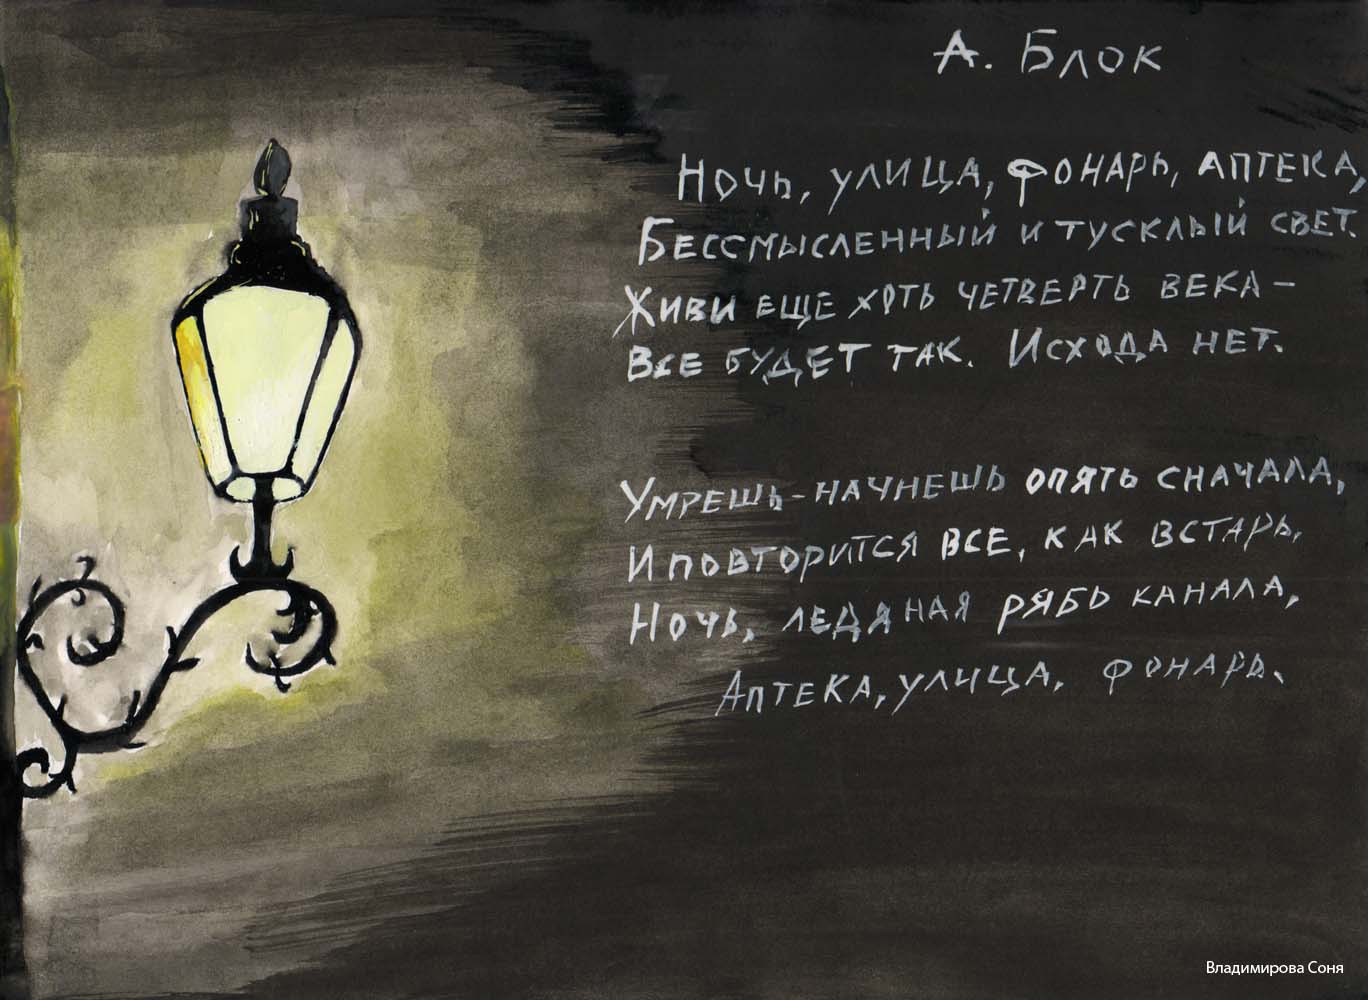 А. Блок
Ночь, улица, фонарь, аптека,
Бессмысленный и тусклый свет.
Живи еще хоть четверть века –
Все будет так. Исхода нет.
Умрешь – начнешь опять сначала,
И повторится все, как встарь.
Ночь, ледяная рябь канала,
Аптека, улица, фонарь.
Владимирова Соня